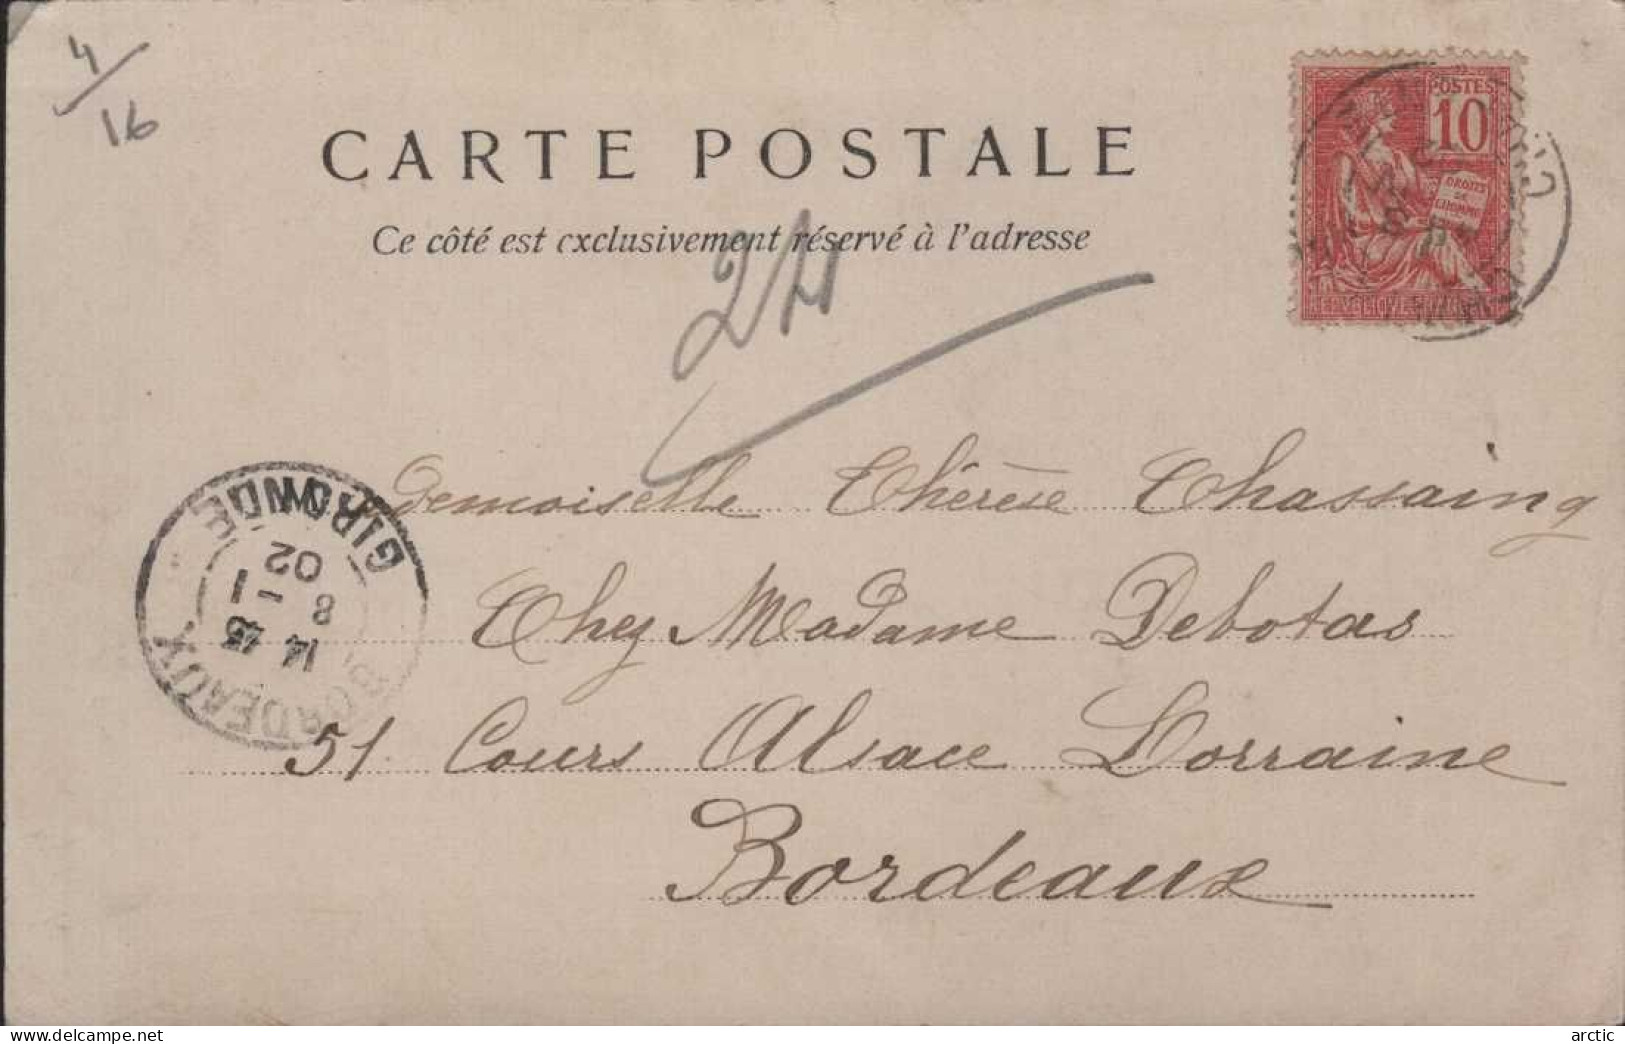 4/16
CARTE POSTALE
Ce côté est exclusivement réservé à l'adresse
POSTES
10
DROITS
DE
L'HOMME
24
Demoiselle Thérèse Chassaing
Chez Madame Debotas
51 Cours Alsace Lorraine
Bordeaux
BORDEAUX
14 45
8 -1
02
GIRONDE
www.delcampe.net
arctic